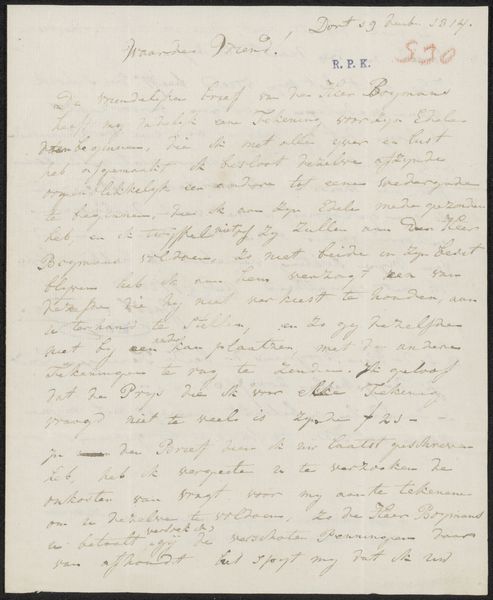 Dort 19 1814.
R.P.K. 530
Waarde Vriend!
De vriendelijke brief van den Heer Boymans
heeft my dadelijk eene Tekening voor zyn Edele
doen beginnen, die ik met alle yver en lust
heb afgemaakt ik besloot dezelve afzynde
oogenblikkelyk een andere tot eene wedergade
te beginnen, die ik aan zyn Edele mede gezonden
heb en ik twyffel niet of zy zullen aan den Heer
Boymans voldoen, zo niet beide in zyn bezit
blyven heb ik aan hem verzogt een van
dezelve die hy niet verkiest te houden, aan
u ter hand te stellen, en zo gy dezelfde
niet by een ander kan plaatsen, met de andere
Tekeningen te rug te zenden. Ik geloof
dat de Prys die ik voor elke Tekening
vraagd niet te veele is zynde f 25 - -
in den Brief dien ik u laatst geschreven
heb, heb ik vergeeten u te verzoeken de
onkosten van vragt voor my aan te tekenen
om u dezelve te voldoen, zo de Heer Boymans
u betaalt verzoek ik gy de verschote Penningen daar
van afhoudt het spyt my dat ik uw